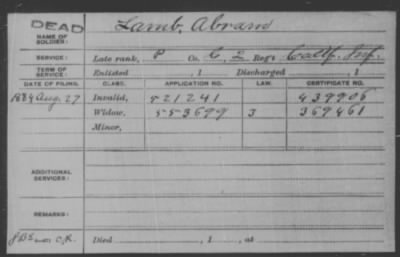 DEAD
NAME OF SOLDIER: Lamb, Abram
SERVICE: Late rank, P Co. C, 2 Reg't Calif. Inf.
TERM OF SERVICE: Enlisted , 1 Discharged , 1
DATE OF FILING. CLASS. APPLICATION NO. LAW. CERTIFICATE NO.
Aug. 27 Invalid, 521241 439906
Widow, 553699 3 369461
Minor,
ADDITIONAL SERVICES:
REMARKS:
Died , 1 , at